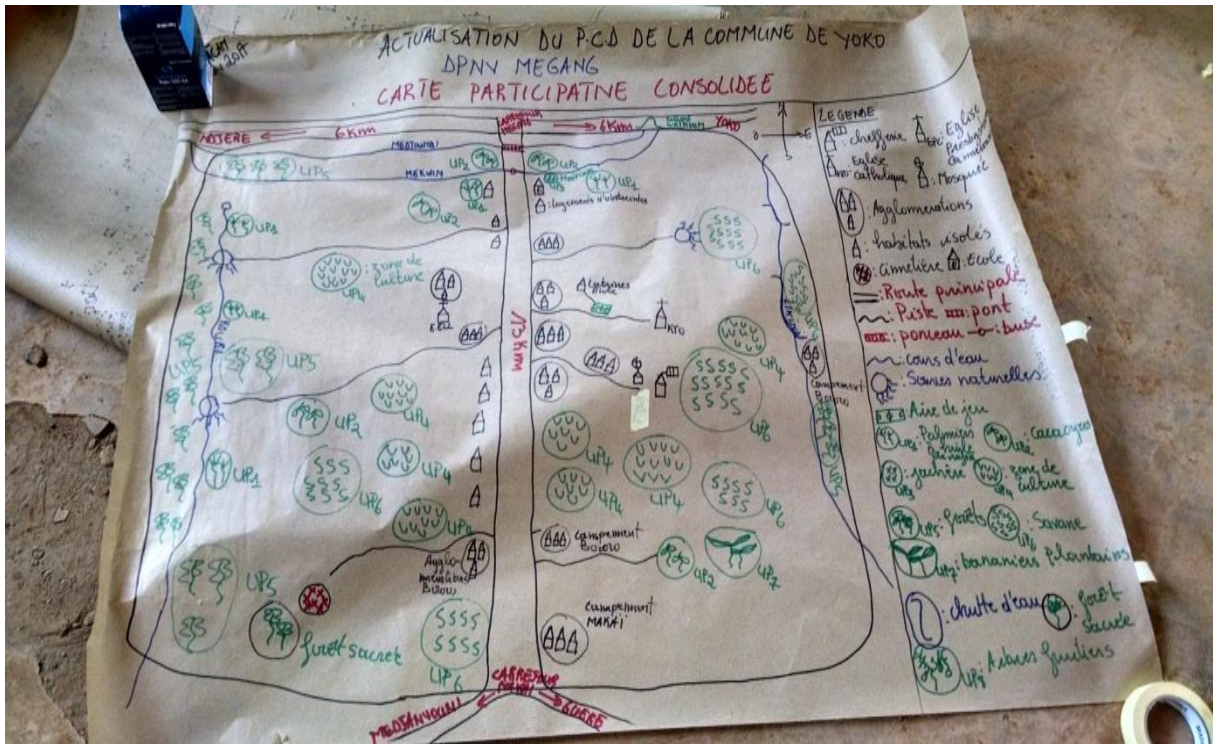 ACTUALISATION DU P.C.D DE LA COMMUNE DE YOKO
DPNV MEGANG
CARTE PARTICIPATIVE CONSOLIDEE
6Km
6Km
YOKO
MEKUIN
UP5
UP2
UP2
UP1
UP2
UP1
: logements d'astreintes
UP6
: zone de culture
UP4
13 Km
Latrines
KTO
UP4
UP5
UP6
UP2
UP4
UP4
UP1
UP6
UP4
UP4
UP4
UP4
UP6
campement Bororo
UP5
campement Bororo
UP2
UP7
Agglo-
mérations
Bororo
UP5
forêt sacrée
UP6
campement
MAKAI
CARREFOUR
MEDJANVOUNI
GUERE
LEGENDE
: chefferie
: Eglise catholique
: Eglise presbytérienne
: Mosquée
: Agglomérations
: habitats isolés
: Cimetière
: Ecole
: Route principale
: Piste
: pont
: ponceau
: buse
: cours d'eau
: Sources naturelles
: Aire de jeu
UP1
: Palmiers
UP2
: Cacaoyers
UP3
: jachère
UP4
: zone de culture
UP5
: forêts
UP6
: Savane
UP7
: bananiers Plantains
: chutte d'eau
: forêt sacrée
: Arbres fruitiers